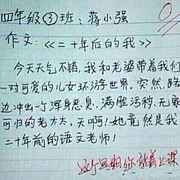 四年级③班：蒋小强
作文：《二十年后的我》
今天天气不错，我和老婆带着我们
一对可爱的儿女环游世界。突然，路
边冲出一浑身恶臭，满脸污秽，无家
可归的老太太。天啊！她竟然是我
二十年前的语文老师！